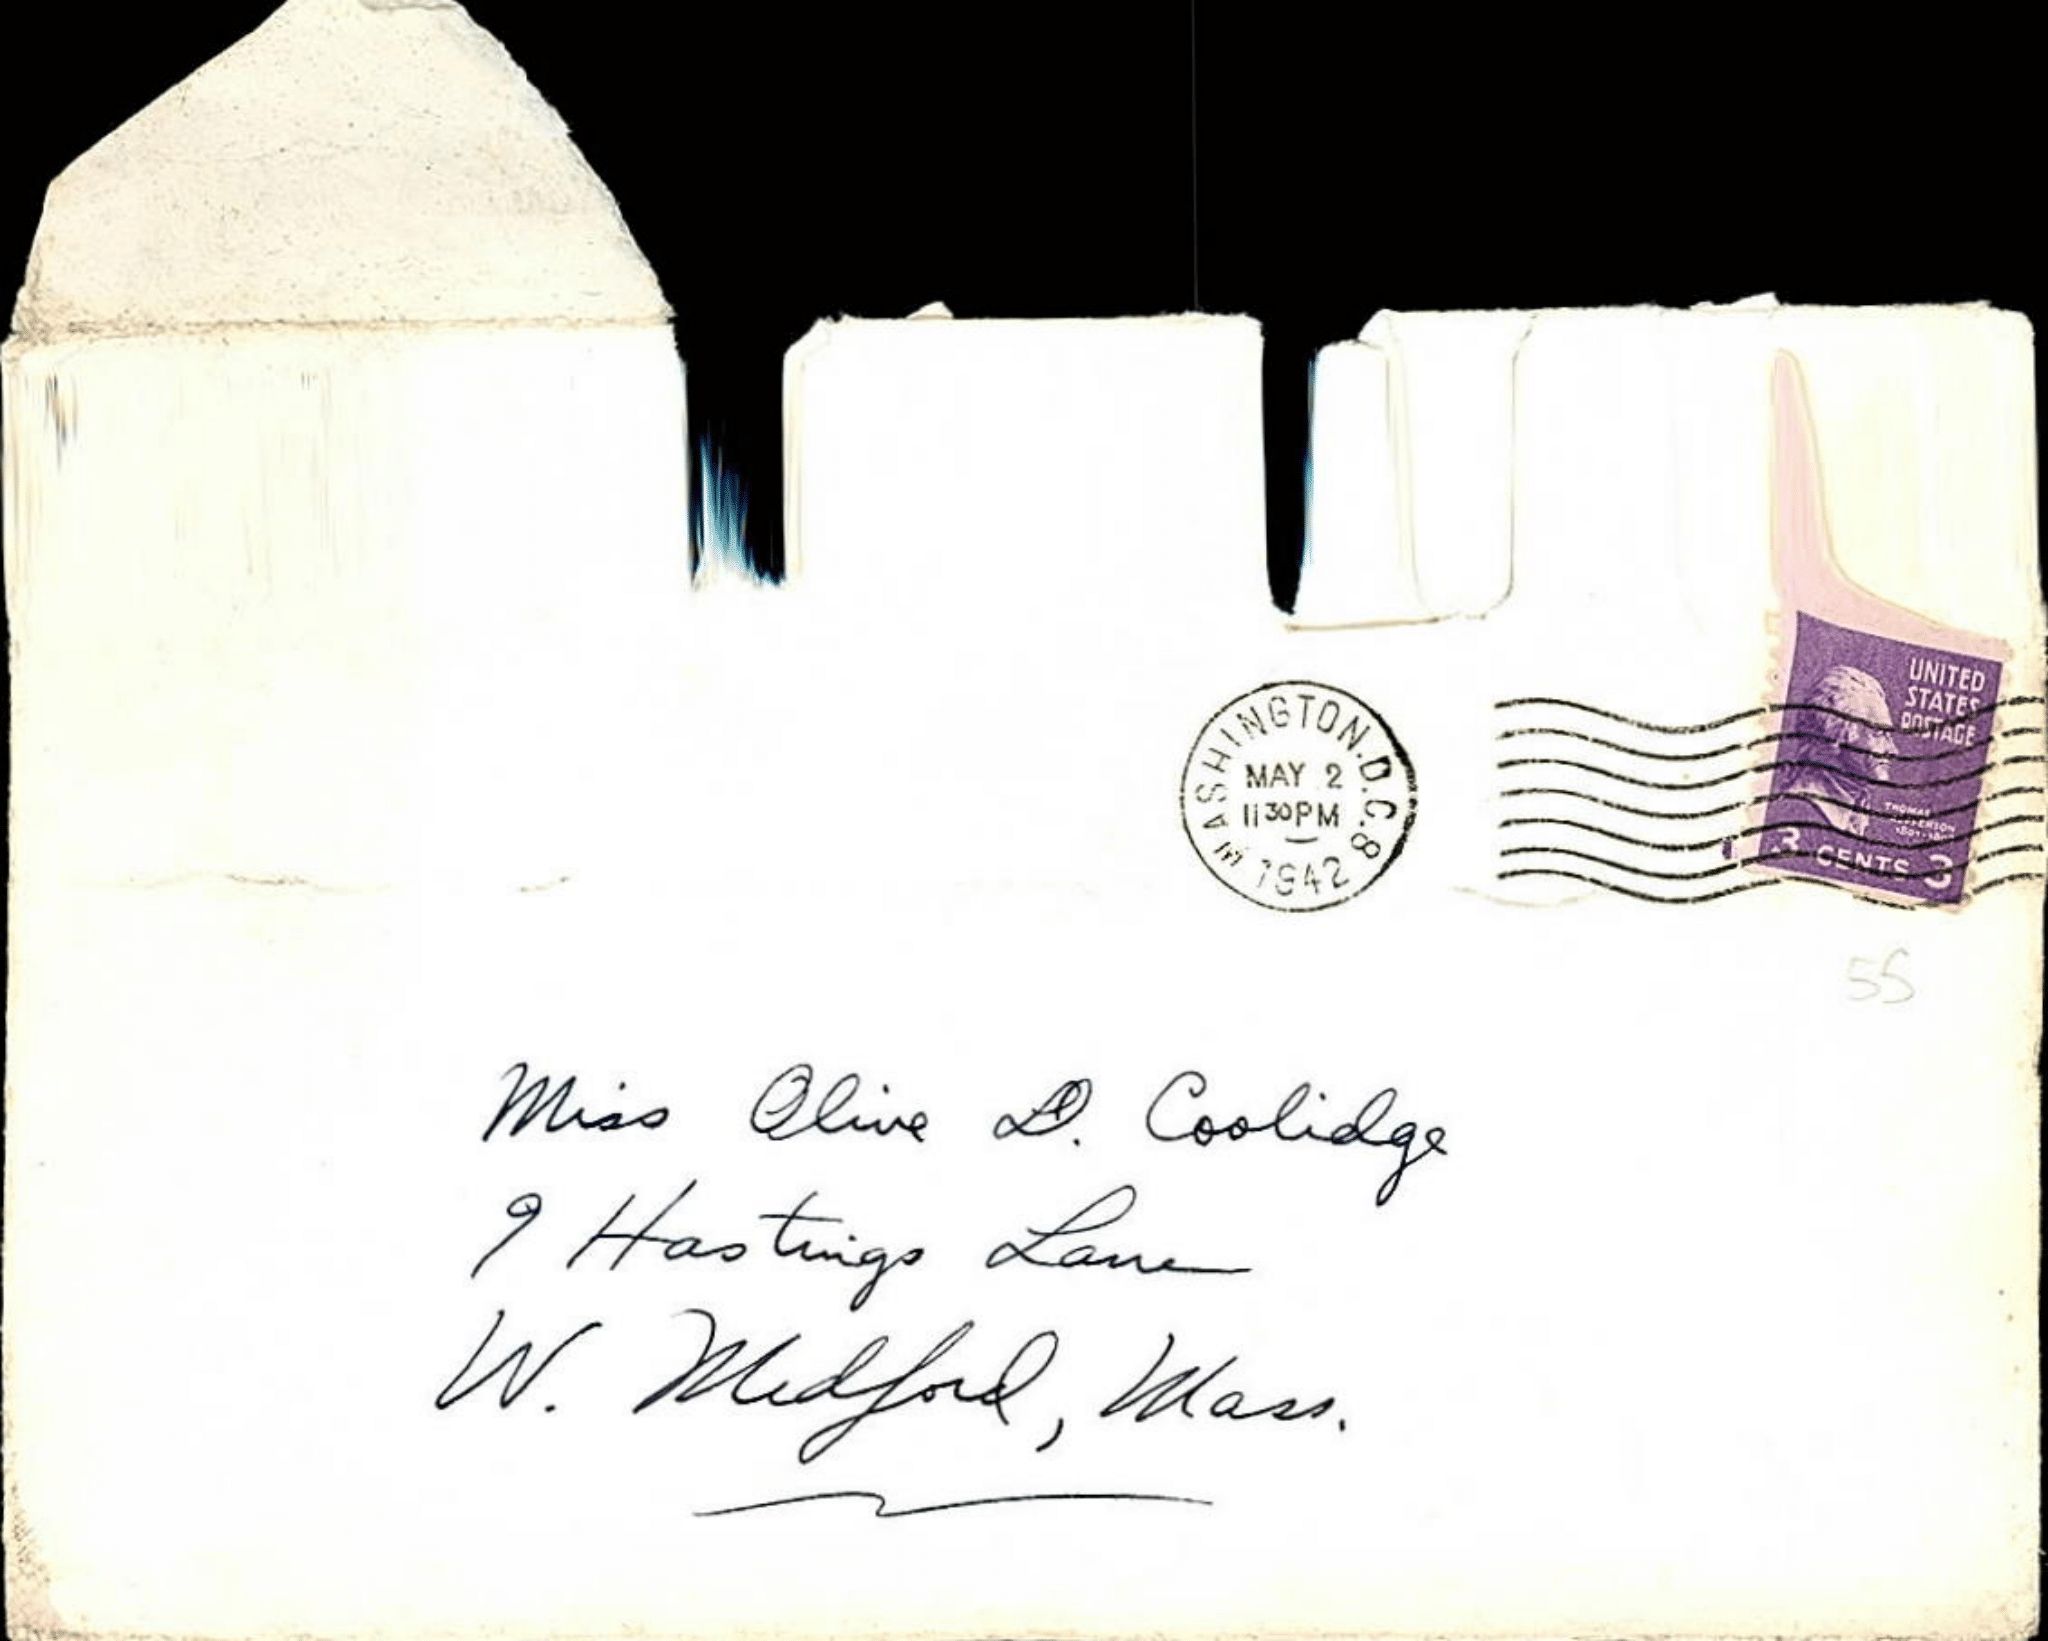 WASHINGTON, D.C. 8
MAY 2
11 30 PM
1942
UNITED
STATES
POSTAGE
THOMAS
JEFFERSON
3 CENTS 3
55
Miss Olive D. Coolidge
9 Hastings Lane
W. Medford, Mass.